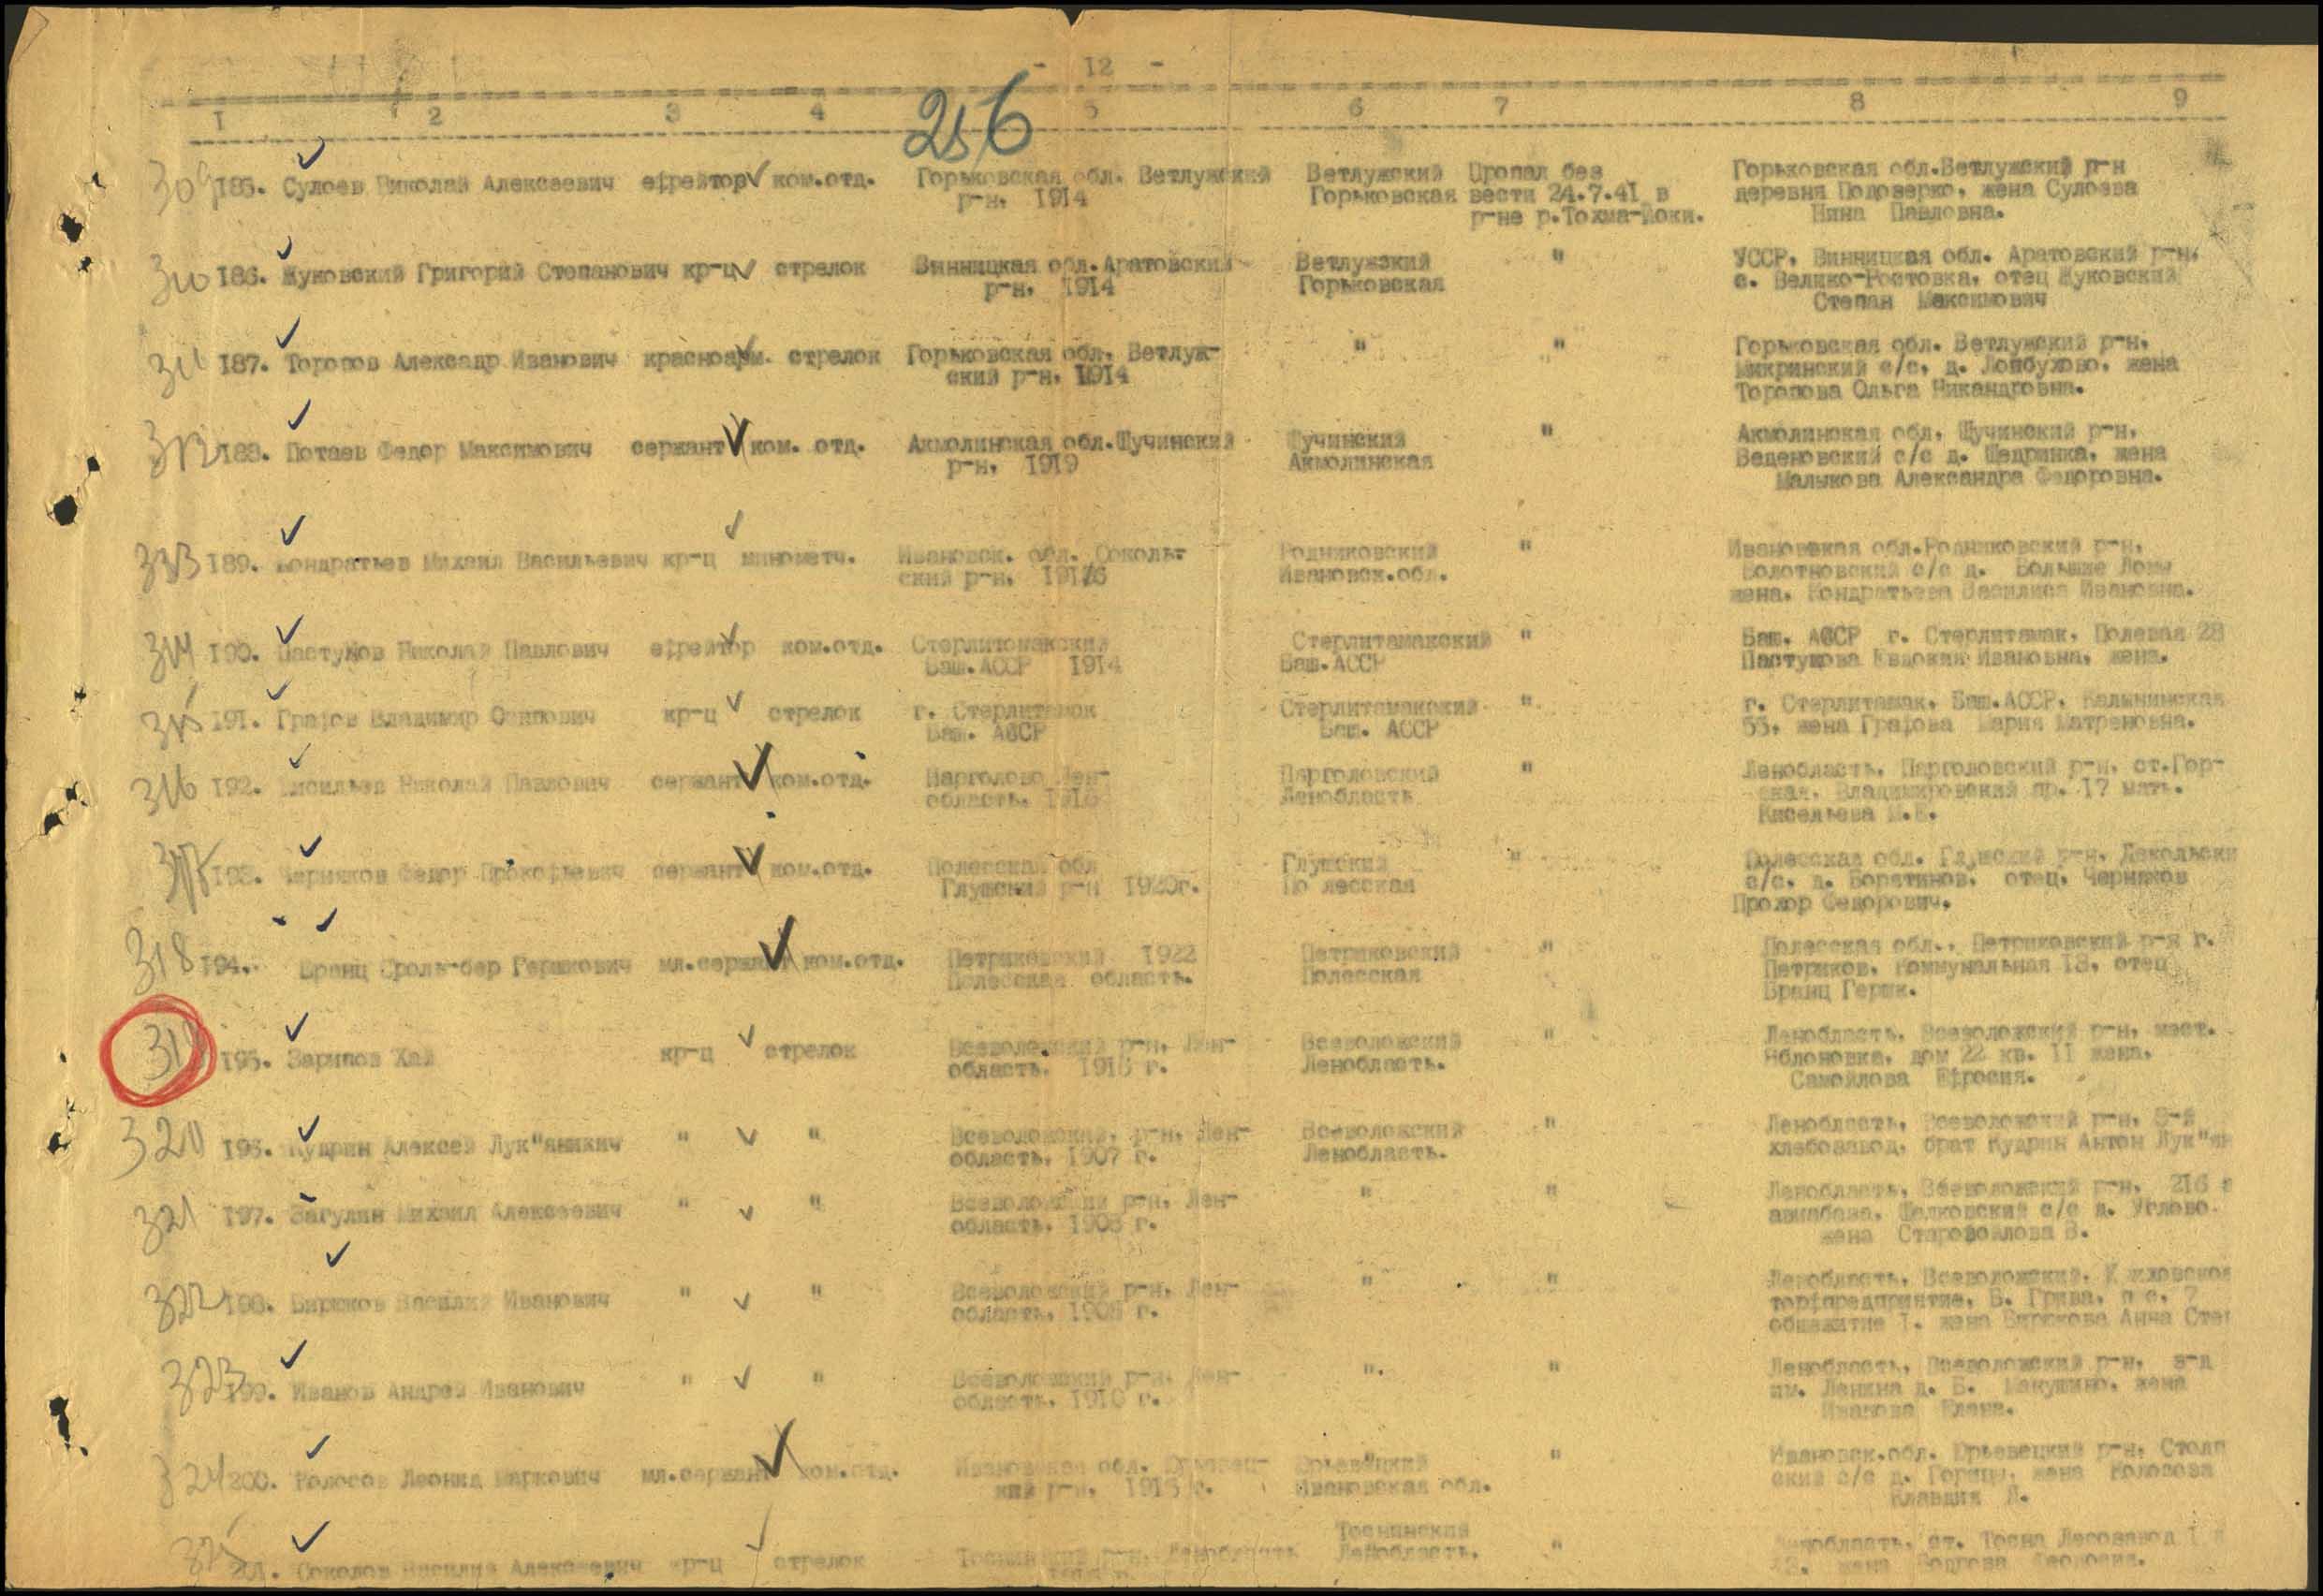 - 12 -
I 2 3 4 5 6 7 8 9
256
309 185. Сулоев Николай Алексеевич ефрейтор ком.отд. Горьковская обл. Ветлужский Ветлужский Пропал без Горьковская обл.Ветлужский р-н
р-н. 1914 Горьковская вести 24.7.41 в деревня жена Сулоева
р-не р.Тохма-Йоки. Нина Павловна.
310 186. Жуковский Григорий Степанович кр-ц стрелок Винницкая обл.Аратовский Ветлужский " УССР, Винницкая обл. Аратовский р-н,
р-н, 1914 Горьковская с. Велико-Ростовка, отец Жуковский
Степан Максимович
311 187. Торопов Александр Иванович красноарм. стрелок Горьковская обл. Ветлуж- " " Горьковская обл. Ветлужский р-н,
ский р-н. 1914 Микринский с/с, д. жена
Торопова Ольга Никандровна.
312 188. Потаев Федор Максимович сержант ком. отд. Акмолинская обл.Щучинский Щучинский " Акмолинская обл, Щучинский р-н,
р-н, 1919 Акмолинская Веденовский с/с д. Щедринка, жена
Малыкова Александра Федоровна.
313 189. Кондратьев Михаил Васильевич кр-ц минометч. Ивановск. обл. Соколь- Родниковский " Ивановская обл.Родниковский р-н,
ский р-н, Ивановск.обл. Болотновский с/с д. Большие Ломы
жена. Кондратьева Василиса Ивановна.
314 190. Пастухов Николай Павлович ефрейтор ком.отд. Стерлитомакский Стерлитамакский " Баш. АССР г. Стерлитамак, Полевая 28
Баш.АССР 1914 Баш.АССР Пастухова Евдокия Ивановна, жена.
315 191. Графов Владимир Осипович кр-ц стрелок г. Стерлитамак Стерлитамакский " г. Стерлитамак, Баш.АССР, Калининская
Баш. АССР Баш. АССР 55, жена Графова Мария Матреновна.
316 192. Николай Павлович сержант ком.отд. Парголово Лен- Парголовский " Ленобласть, Парголовский р-н, ст.Гор-
область, Ленобласть ская, Владимировский пр. 17 мать.
Кисельева
317 193. Черняков Федор Прокофьевич сержант ком.отд. Полесская обл Глушский " Полесская обл. Глушский р-н,
Глушский р-н 1920г. По лесская с/с, д. отец, Черняков
Прохор Федорович.
318 194. Бранц Сроль-бер Гершкович мл.сержант ком.отд. Петриковский 1922 Петриковский " Полесская обл., Петриковский р-н г.
Полесская область. Полесская Петриков, Коммунальная 18, отец
Бранц Герш.
319 195. Зарипов Хай кр-ц стрелок Всеволожский р-н, Лен- Всеволожский " Ленобласть, Всеволожский р-н, мест.
область, г. Ленобласть. Яблоновка, дом 22 кв. II жена,
Самойлова Ефросия.
320 196. Кудрин Алексей Лук"янивич " " Всеволожский, р-н, Лен- Всеволожский " Ленобласть, Всеволожский р-н, 5-й
область, 1907 г. Ленобласть. хлебозавод, брат Кудрин Антон Лук"ян
321 197. Загулин Михаил Алексеевич " " Всеволожский р-н, Лен- " " Ленобласть, Всеволожский р-н, 216
область, 1908 г. авиабаза, с/с д. Углово.
жена
322 198. Бирюков Василий Иванович " " Всеволожский р-н, Лен- " " Ленобласть, Всеволожский,
область, г. торфпредприятие, Б. Грива, п с. 7
общежитие I. жена Бирюкова Анна Сте
323 199. Иванов Андрей Иванович " " Всеволожский р-н, Лен- " " Ленобласть, Всеволожский р-н, з-д
область, 1910 г. им. Ленина д. Б. жена
Иванова Елена.
324 200. Колосов Леонид Маркович мл.сержант ком.отд. Ивановская обл. Юрьевец- Юрьевецкий " Ивановск.обл. Юрьевецкий р-н, Столп
кий р-н, г. Ивановская обл. ский с/с д. жена Колосова
Клавдия
325 Соколов Василий Алексеевич кр-ц стрелок р-н, Ленобласть Тоснинский " Ленобласть, ст. Тосна Лесозавод
Ленобласть. жена